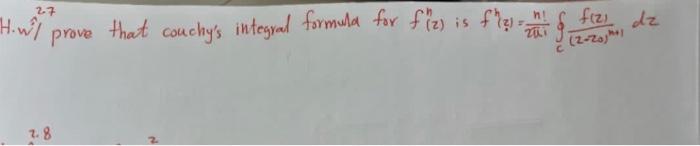 27
H.w/ prove that couchy's integral formula for fⁿ(z) is fⁿ(z) = n!/2πi ∮c f(z)/(z-z₀)ⁿ⁺¹ dz
2.8 2